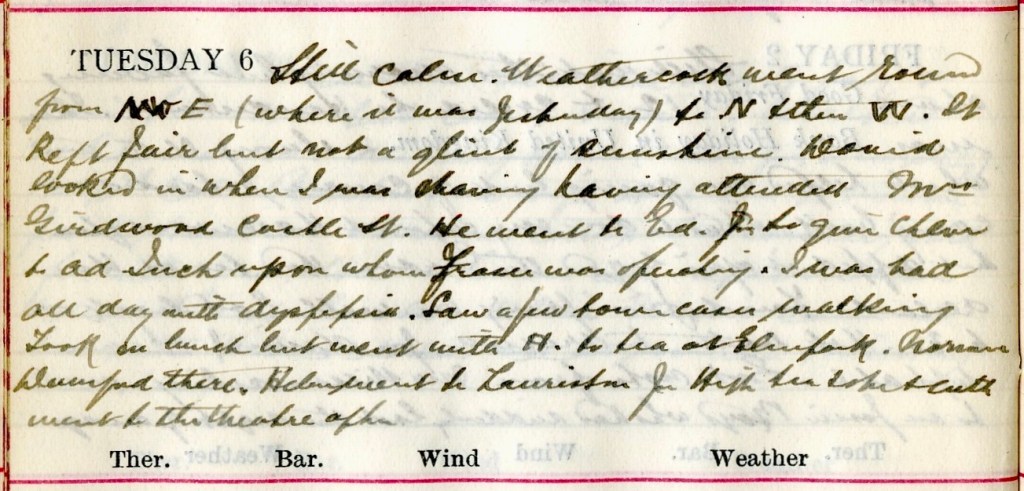 TUESDAY 6 Still calm. Weathercock went round
from E (where it was yesterday) to N & then W. It
kept fair but not a glint of sunshine. David
looked in when I was shaving having attended Mrs
Girdwood Castle St. He went to Ed. to give Chlor
to ad Inch upon whom Fraser was operating. I was bad
all day with dyspepsia. Saw a few town cases walking
Took no lunch but went with H. to tea at Elmpark. Norman
there. Helen went to Lauriston for High tea & she &
went to the theatre after
Ther. Bar. Wind Weather